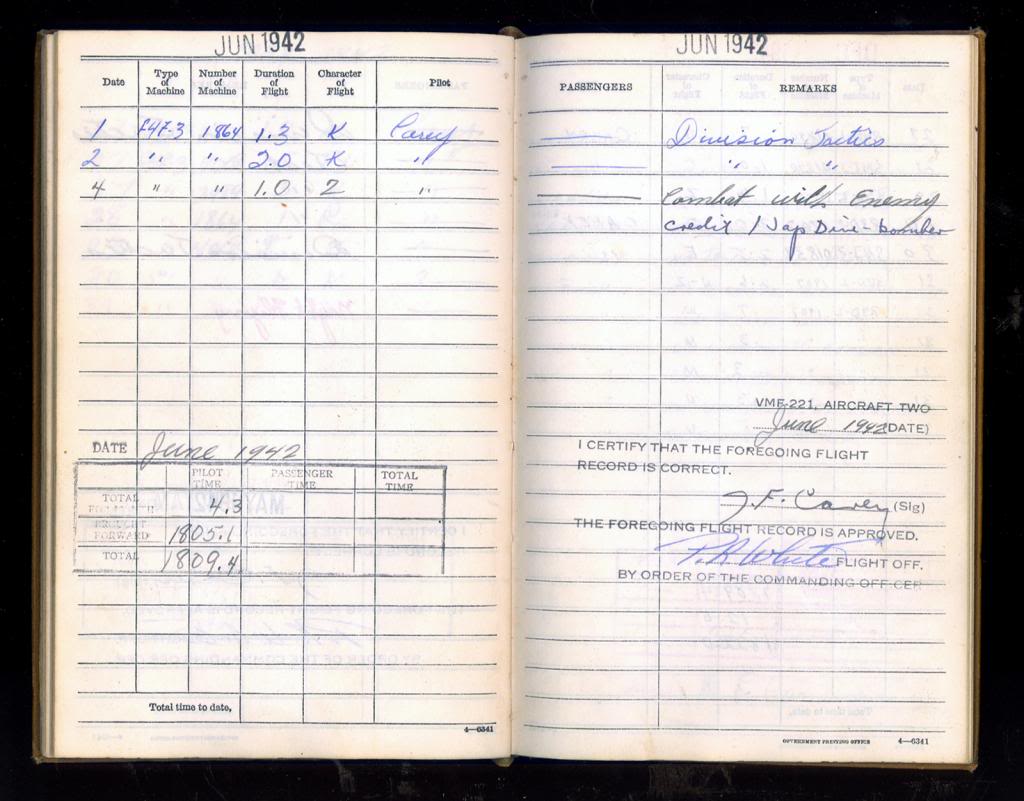 JUN 1942
Date Type of Machine Number of Machine Duration of Flight Character of Flight Pilot
1 F4F-3 1864 1.3 K Carey
2 " " 2.0 K "
4 " " 1.0 2 "
DATE June 1942
PILOT TIME PASSENGER TIME TOTAL TIME
TOTAL 4.3
BROUGHT FORWARD 1805.1
TOTAL 1809.4
Total time to date,
4—6341
JUN 1942
PASSENGERS REMARKS
Division Tactics
" "
Combat with Enemy
credit 1 Jap Dive-bomber
VMF-221, AIRCRAFT TWO
June 1942 (DATE)
I CERTIFY THAT THE FOREGOING FLIGHT
RECORD IS CORRECT.
J.F. Carey (Sig)
THE FOREGOING FLIGHT RECORD IS APPROVED.
P.R. White FLIGHT OFF.
BY ORDER OF THE COMMANDING OFFICER
GOVERNMENT PRINTING OFFICE 4—6341